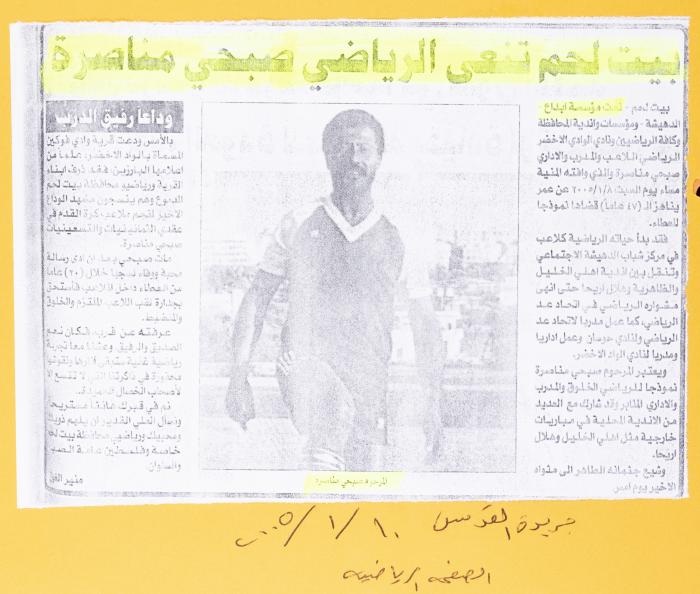 بيت لحم تنعى الرياضي صبحي مناصرة
بيت لحم - نعت مؤسسة ابداع -
الدهيشة - ومؤسسات واندية المحافظة
وكافة الرياضيين ونادي الوادي الاخضر
الرياضي اللاعب والمدرب والاداري
صبحي مناصرة والذي وافته المنية
مساء يوم السبت ٢٠٠٥/١/٨ عن عمر
يناهز الـ (٤٧ عاما) قضاها نموذجا
للعطاء.
فقد بدأ حياته الرياضية كلاعب
في مركز شباب الدهيشة الاجتماعي
وتنقل بين اندية اهلي الخليل
والظاهرية وهلال اريحا حتى انهى
مشواره الرياضي في اتحاد عد
الرياضي، كما عمل مدربا لاتحاد عد
الرياضي ولنادي حوسان وعمل اداريا
ومدربا لنادي الواد الاخضر.
ويعتبر المرحوم صبحي مناصرة
نموذجا للرياضي الخلوق والمدرب
والاداري المثابر وقد شارك مع العديد
من الاندية المحلية في مباريات
خارجية مثل اهلي الخليل وهلال
اريحا.
وشيع جثمانه الطاهر الى مثواه
الاخير يوم امس
المرحوم صبحي مناصرة
وداعا رفيق الدرب
بالأمس ودعت قرية وادي فوكين
المسماة بالواد الاخضر، علما من
اعلامها البارزين، فقد ذرف ابناء
القرية ورياضيو محافظة بيت لحم
الدموع وهم ينسجون مشهد الوداع
الاخير لنجم ملاعب كرة القدم في
عقدي الثمانينيات والتسعينيات
صبحي مناصرة.
مات صبحي بعد ان ادى رسالة
محبة ووفاء نسجها خلال (٢٠) عاما
من العطاء داخل الملاعب فاستحق
بجدارة لقب اللاعب الملتزم والخلوق
والمنضبط.
عرفته عن قرب، فكان نعم
الصديق والرفيق وعشنا معا تجربة
رياضية غنية ستبقى اثارها ونقوشها
محفورة في ذاكرتنا التي لا تتسع الا
لاصحاب الخصال الحميدة.
نم في قبرك هانئا مستريحا
ونسأل العلي القدير ان يلهم ذويك
ومحبيك ورياضيي محافظة بيت لحم
خاصة وفلسطين عامة الصبر
والسلوان
منير الغول
جريدة القدس ٢٠٠٥/١/١٠
الصفحة الرياضية